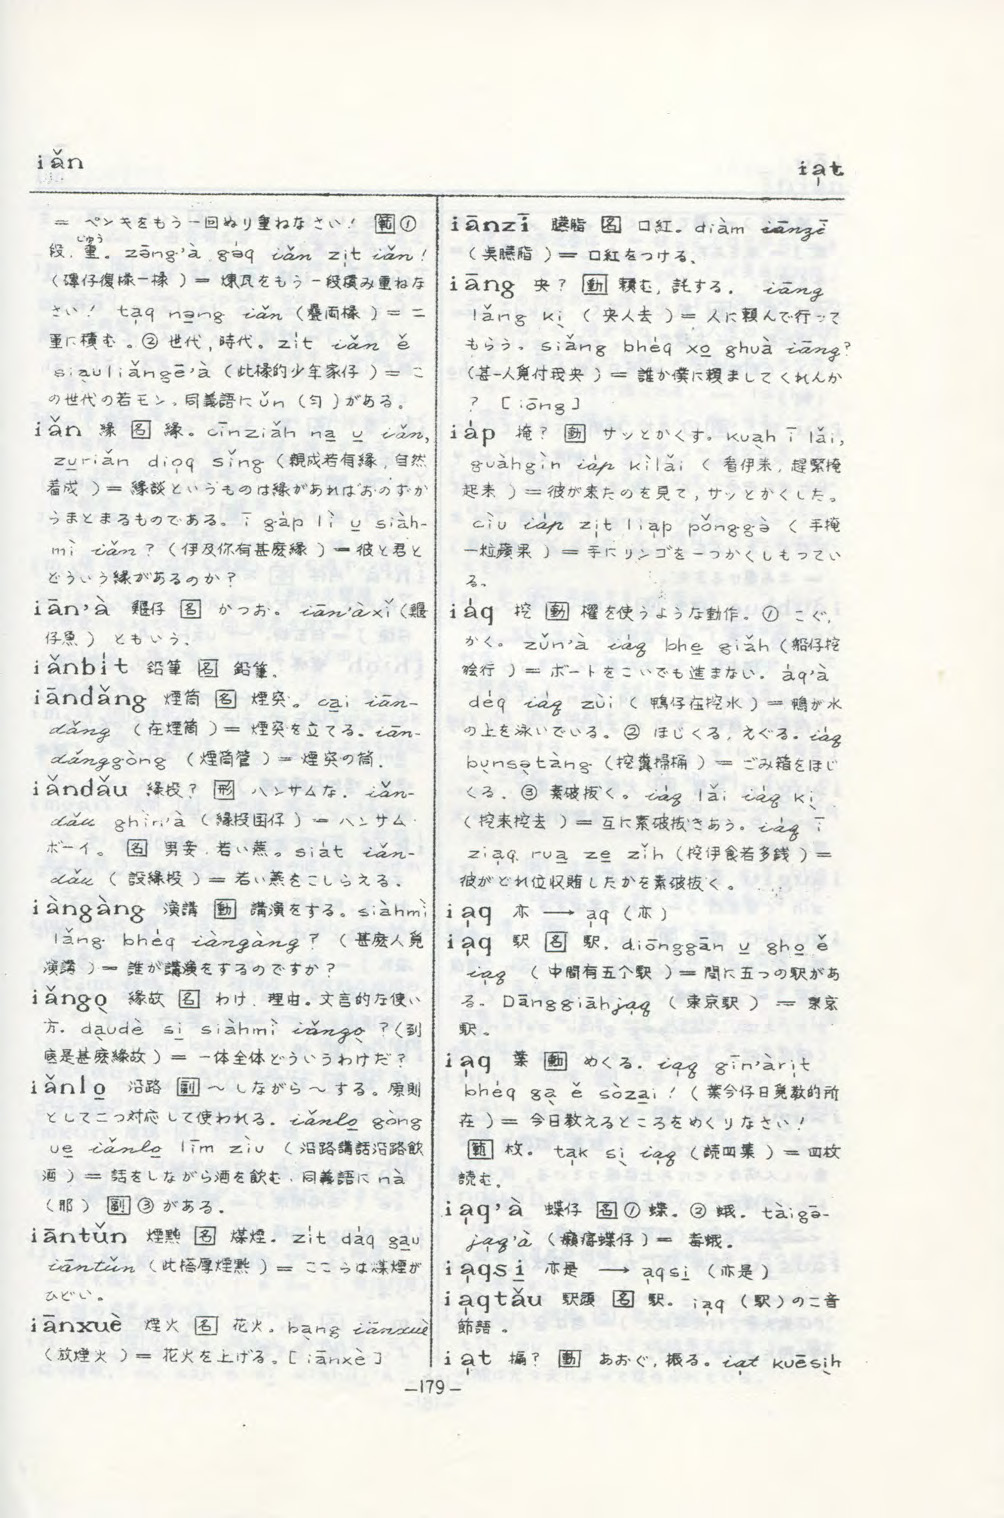 iǎn
ia̍t
= ペンキをもう一回ぬり重ねなさい! 範①
段,重(じゅう)。zāng'à gə̀q iǎn zi̍t iǎn!
(磚仔復櫞一櫞)= 煉瓦をもう一段積み重ねな
さい! ta̍q nəng iǎn (疊両櫞)= 二
重に積む。② 世代,時代。zi̍t iǎn ě
siàuliǎngē'à (此櫞的少年家仔)= こ
の世代の若モン。同義語に ǔn (匀)がある。
iǎn 縁 名 縁。cīnziǎh na u iǎn,
zuriǎn dioq sǐng (親成若有縁,自然
着成)= 縁談というものは縁があればおのずか
うまとまるものである。ī gàp lì u siàh-
mì iǎn? (伊及你有甚麽縁)= 彼と君と
どういう縁があるのか?
iān'à 名 かつお。iān'àxǐ
仔魚)ともいう。
iǎnbi̍t 鉛筆 名 鉛筆。
iāndǎng 煙筒 名 煙突。cai iān-
dǎng (在煙筒)= 煙突を立てる。iān-
dǎnggòng (煙筒管)= 煙突の筒。
iǎndǎu 縁投? 形 ハンサムな。iǎn-
dǎu ghìn'à (縁投囝仔)= ハンサム・
ボーイ。 名 男妾,若い燕。siàt iǎn-
dǎu (設縁投)= 若い燕をこしらえる。
iàngàng 演講 動 講演をする。siàhmì
lǎng bhéq iàngàng? (甚麽人覓
演講)= 誰が講演をするのですか?
iǎngo 縁故 名 わけ,理由。文言的な使い
方。dàudè si siàhmì iǎngo?(到
底是甚麽縁故)= 一体全体どういうわけだ?
iǎnlo 沿路 副 〜しながら〜する。原則
として二つ対応して使われる。iǎnlo gòng
ue iǎnlo līm ziu (沿路講話沿路飲
酒)= 話をしながら酒を飲む。同義語に nà
(那)副③がある。
iāntǔn 煙黗 名 煤煙。zi̍t dàq gau
iāntǔn (此搭厚煙黗)= ここらは煤煙が
ひどい。
iānxuè 煙火 名 花火。bàng iānxuè
(放煙火)= 花火を上げる。[iānxè]
iānzī 臙脂 名 口紅。diàm iānzī
臙脂)= 口紅をつける。
iāng 央? 動 頼む,託する。iāng
lǎng kì (央人去)= 人に頼んで行って
もらう。siǎng bhéq xo ghuà iāng?
(甚-人覓付我央)= 誰か僕に頼ましてくれんか
? [iōng]
iáp 掩? 動 サッとかくす。kuàh ī lǎi,
guàhgìn iáp kìlǎi (看伊来,趕緊掩
起来)= 彼が来たのを見て,サッとかくした。
cìu iáp zi̍t liap pǒnggə̀ (手掩
一粒蘋果)= 手にリンゴを一つかくしもってい
る。
iáq 挖 動 櫂を使うような動作。① こぐ,
かく。zǔn'à iáq bhe giǎh (船仔挖
行)= ボートをこいでも進まない。áq'à
déq iáq zùi (鴨仔在挖水)= 鴨が水
の上を泳いでいる。② ほじくる,えぐる。iáq
bùnsə̀tàng (挖糞掃桶)= ごみ箱をほじ
くる。③ 素破抜く。iáq lǎi iáq kì
(挖来挖去)= 互に素破抜きあう。iáq ī
ziaq rua ze zǐh (挖伊食若多銭)=
彼がどれ位収賄したかを素破抜く。
ia̍q 亦 → a̍q (亦)
ia̍q 駅 名 駅。diōnggān u gho ě
ia̍q (中間有五个駅)= 間に五つの駅があ
る。Dānggiāhja̍q (東京駅)= 東京
駅。
ia̍q 葉 動 めくる。ia̍q gīn'àri̍t
bhéq gà ě sòzai! (葉今仔日覓教的所
在)= 今日教えるところをめくりなさい!
範 枚。ta̍k sì ia̍q (読四葉)= 四枚
読む。
ia̍q'à 蝶仔 名① 蝶。② 蛾。tàigə̄-
ja̍q'à (癩瘑蝶仔)= 毒蛾。
ia̍qsi 亦是 → a̍qsi (亦是)
ia̍qtǎu 駅頭 名 駅。ia̍q (駅)の二音
節語。
ia̍t 搧? 動 あおぐ,振る。ia̍t kuēsìh
—179—